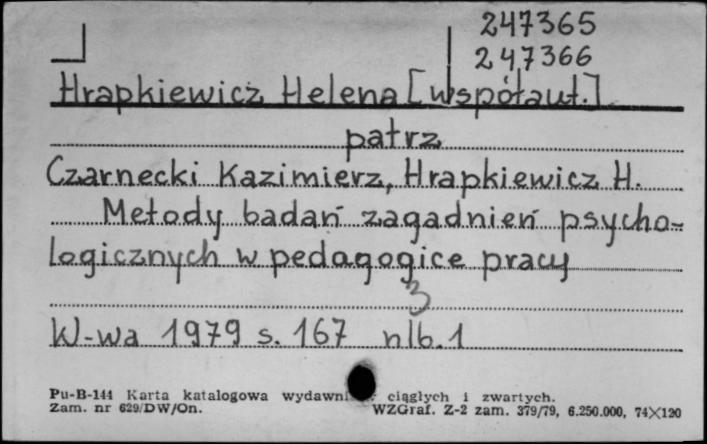 247365
247366
Hrapkiewicz Helena [współaut.]
patrz
Czarnecki Kazimierz, Hrapkiewicz H.
Metody badań zagadnień psycho-
logicznych w pedagogice pracy
3
W-wa 1979 s. 167 nlb. 1
Pu-B-144 Karta katalogowa wydawni ciągłych i zwartych.
Zam. nr 629/DW/On. WZGraf. Z-2 zam. 379/79, 6.250.000, 74×120